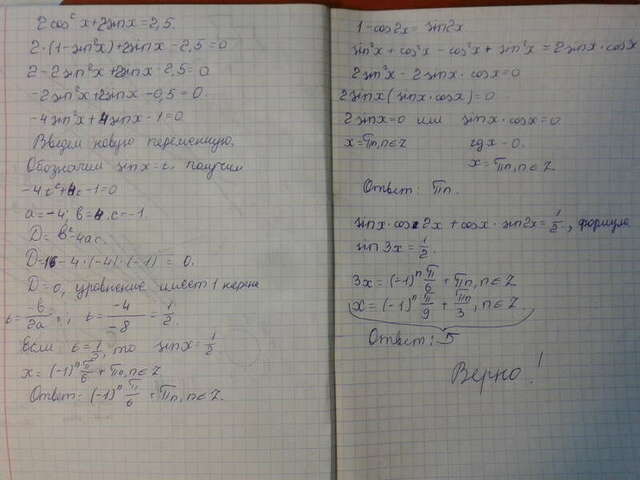 2cos²x+2sinx=2,5.
2·(1-sin²x)+2sinx-2,5=0
2-2sin²x+2sinx-2,5=0
-2sin²x+2sinx-0,5=0.
-4sin²x+4sinx-1=0.
Введем новую переменную.
Обозначим sinx=t. получим
-4t²+4t-1=0
a=-4; b=4. c=-1.
D=b²-4ac.
D=16-4·(-4)·(-1)=0.
D=0, уравнение имеет 1 корень
t=-b/2a; t=-4/-8=1/2.
Если t=1/2, то sinx=1/2
x=(-1)ⁿ π/6+πn, n∈Z
Ответ: (-1)ⁿ π/6+πn, n∈Z.
1-cos2x=sin2x
sin²x+cos²x-cos²x+sin²x=2sinx·cosx
2sin²x-2sinx·cosx=0
2sinx(sinx·cosx)=0
2sinx=0 или sinx·cosx=0
x=πn, n∈Z tgx-0.
x=πn, n∈Z
Ответ: πn.
sinx·cos2x+cosx·sin2x=1/2, формула
sin3x=1/2.
3x=(-1)ⁿ π/6+πn, n∈Z
x=(-1)ⁿ π/9+πn/3, n∈Z
Ответ:
Верно!